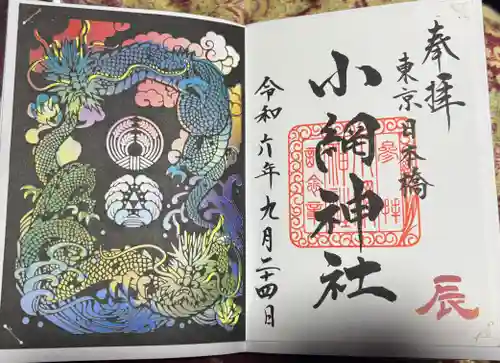 奉拝
東京日本橋
小網神社
令和六年九月二十四日
辰